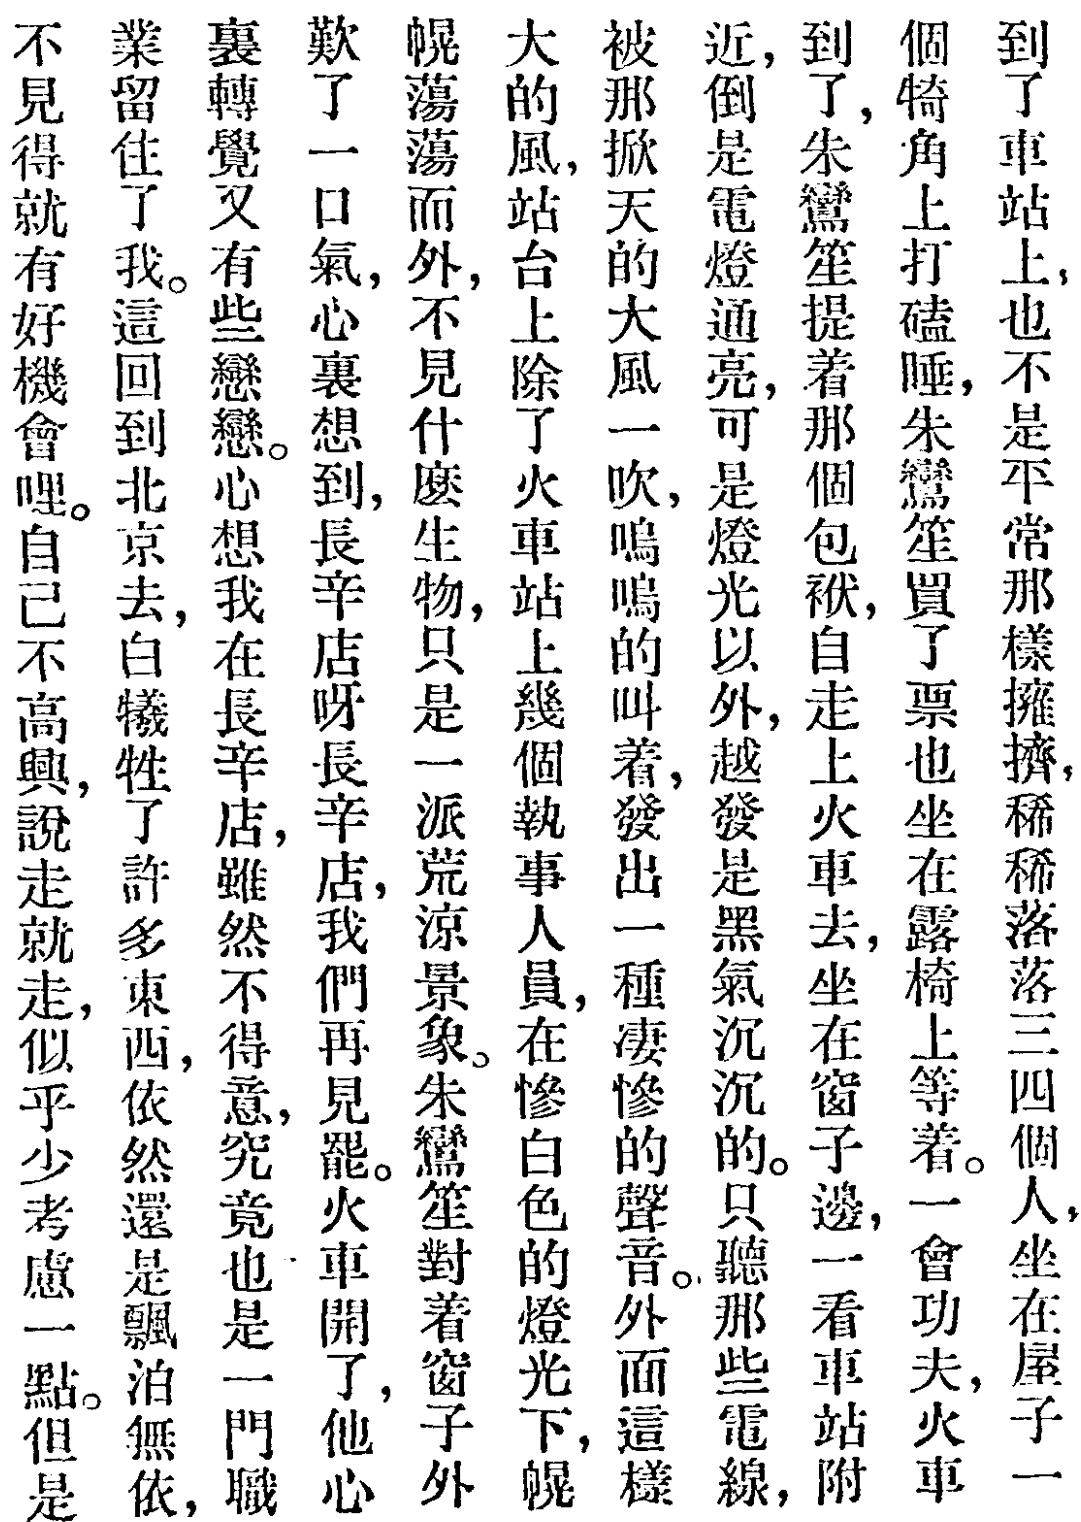 到了車站上,也不是平常那樣擁擠,稀稀落落三四個人,坐在屋子一
個犄角上打磕睡,朱鸞笙買了票也坐在露椅上等着。一會功夫,火車
到了,朱鸞笙提着那個包袱,自走上火車去,坐在窗子邊,一看車站附
近,倒是電燈通亮,可是燈光以外,越發是黑氣沉沉的。只聽那些電線,
被那掀天的大風一吹,嗚嗚的叫着,發出一種凄慘的聲音。外面這樣
大的風,站台上除了火車站上幾個執事人員,在慘白色的燈光下,幌
幌蕩蕩而外,不見什麽生物,只是一派荒涼景象。朱鸞笙對着窗子外
歎了一口氣,心裏想到,長辛店呀長辛店,我們再見罷。火車開了,他心
裏轉覺又有些戀戀。心想我在長辛店,雖然不得意,究竟也是一門職
業留住了我。這回到北京去,白犧牲了許多東西,依然還是飄泊無依,
不見得就有好機會哩。自己不高興,說走就走,似乎少考慮一點。但是